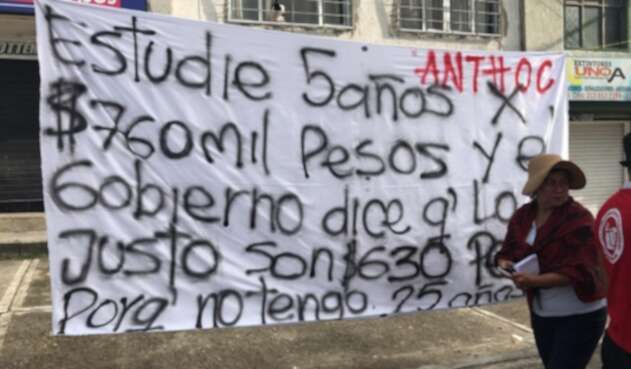 ANTHOC
Estudie 5 años X
$760 mil Pesos y el
Gobierno dice q' Lo
Justo son $630
Porq' no tengo 25 años
EXTINTORES
UNOA